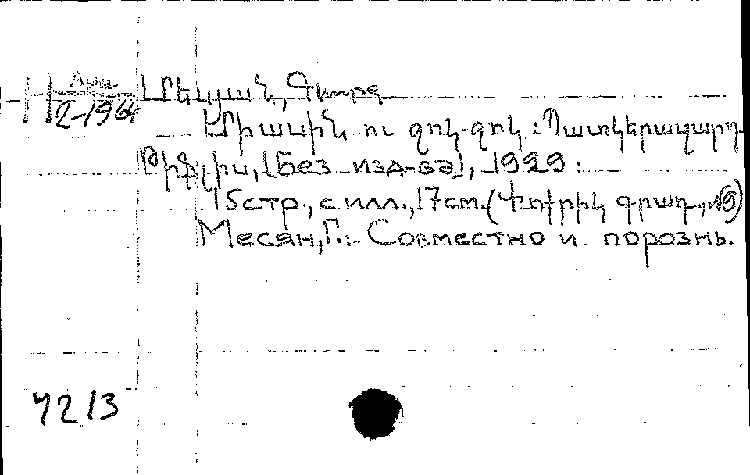 Арм
2-1964
Մեսյան, Գևորգ
Միասին ու զոկ-զոկ: Պատկերազարդ
Թիֆլիս, [без изд-ва], 1929.
15 стр., с илл., 17 см. (Փոքրիկ գրադ., № 9)
Месян, Г.: Совместно и порознь.
4213